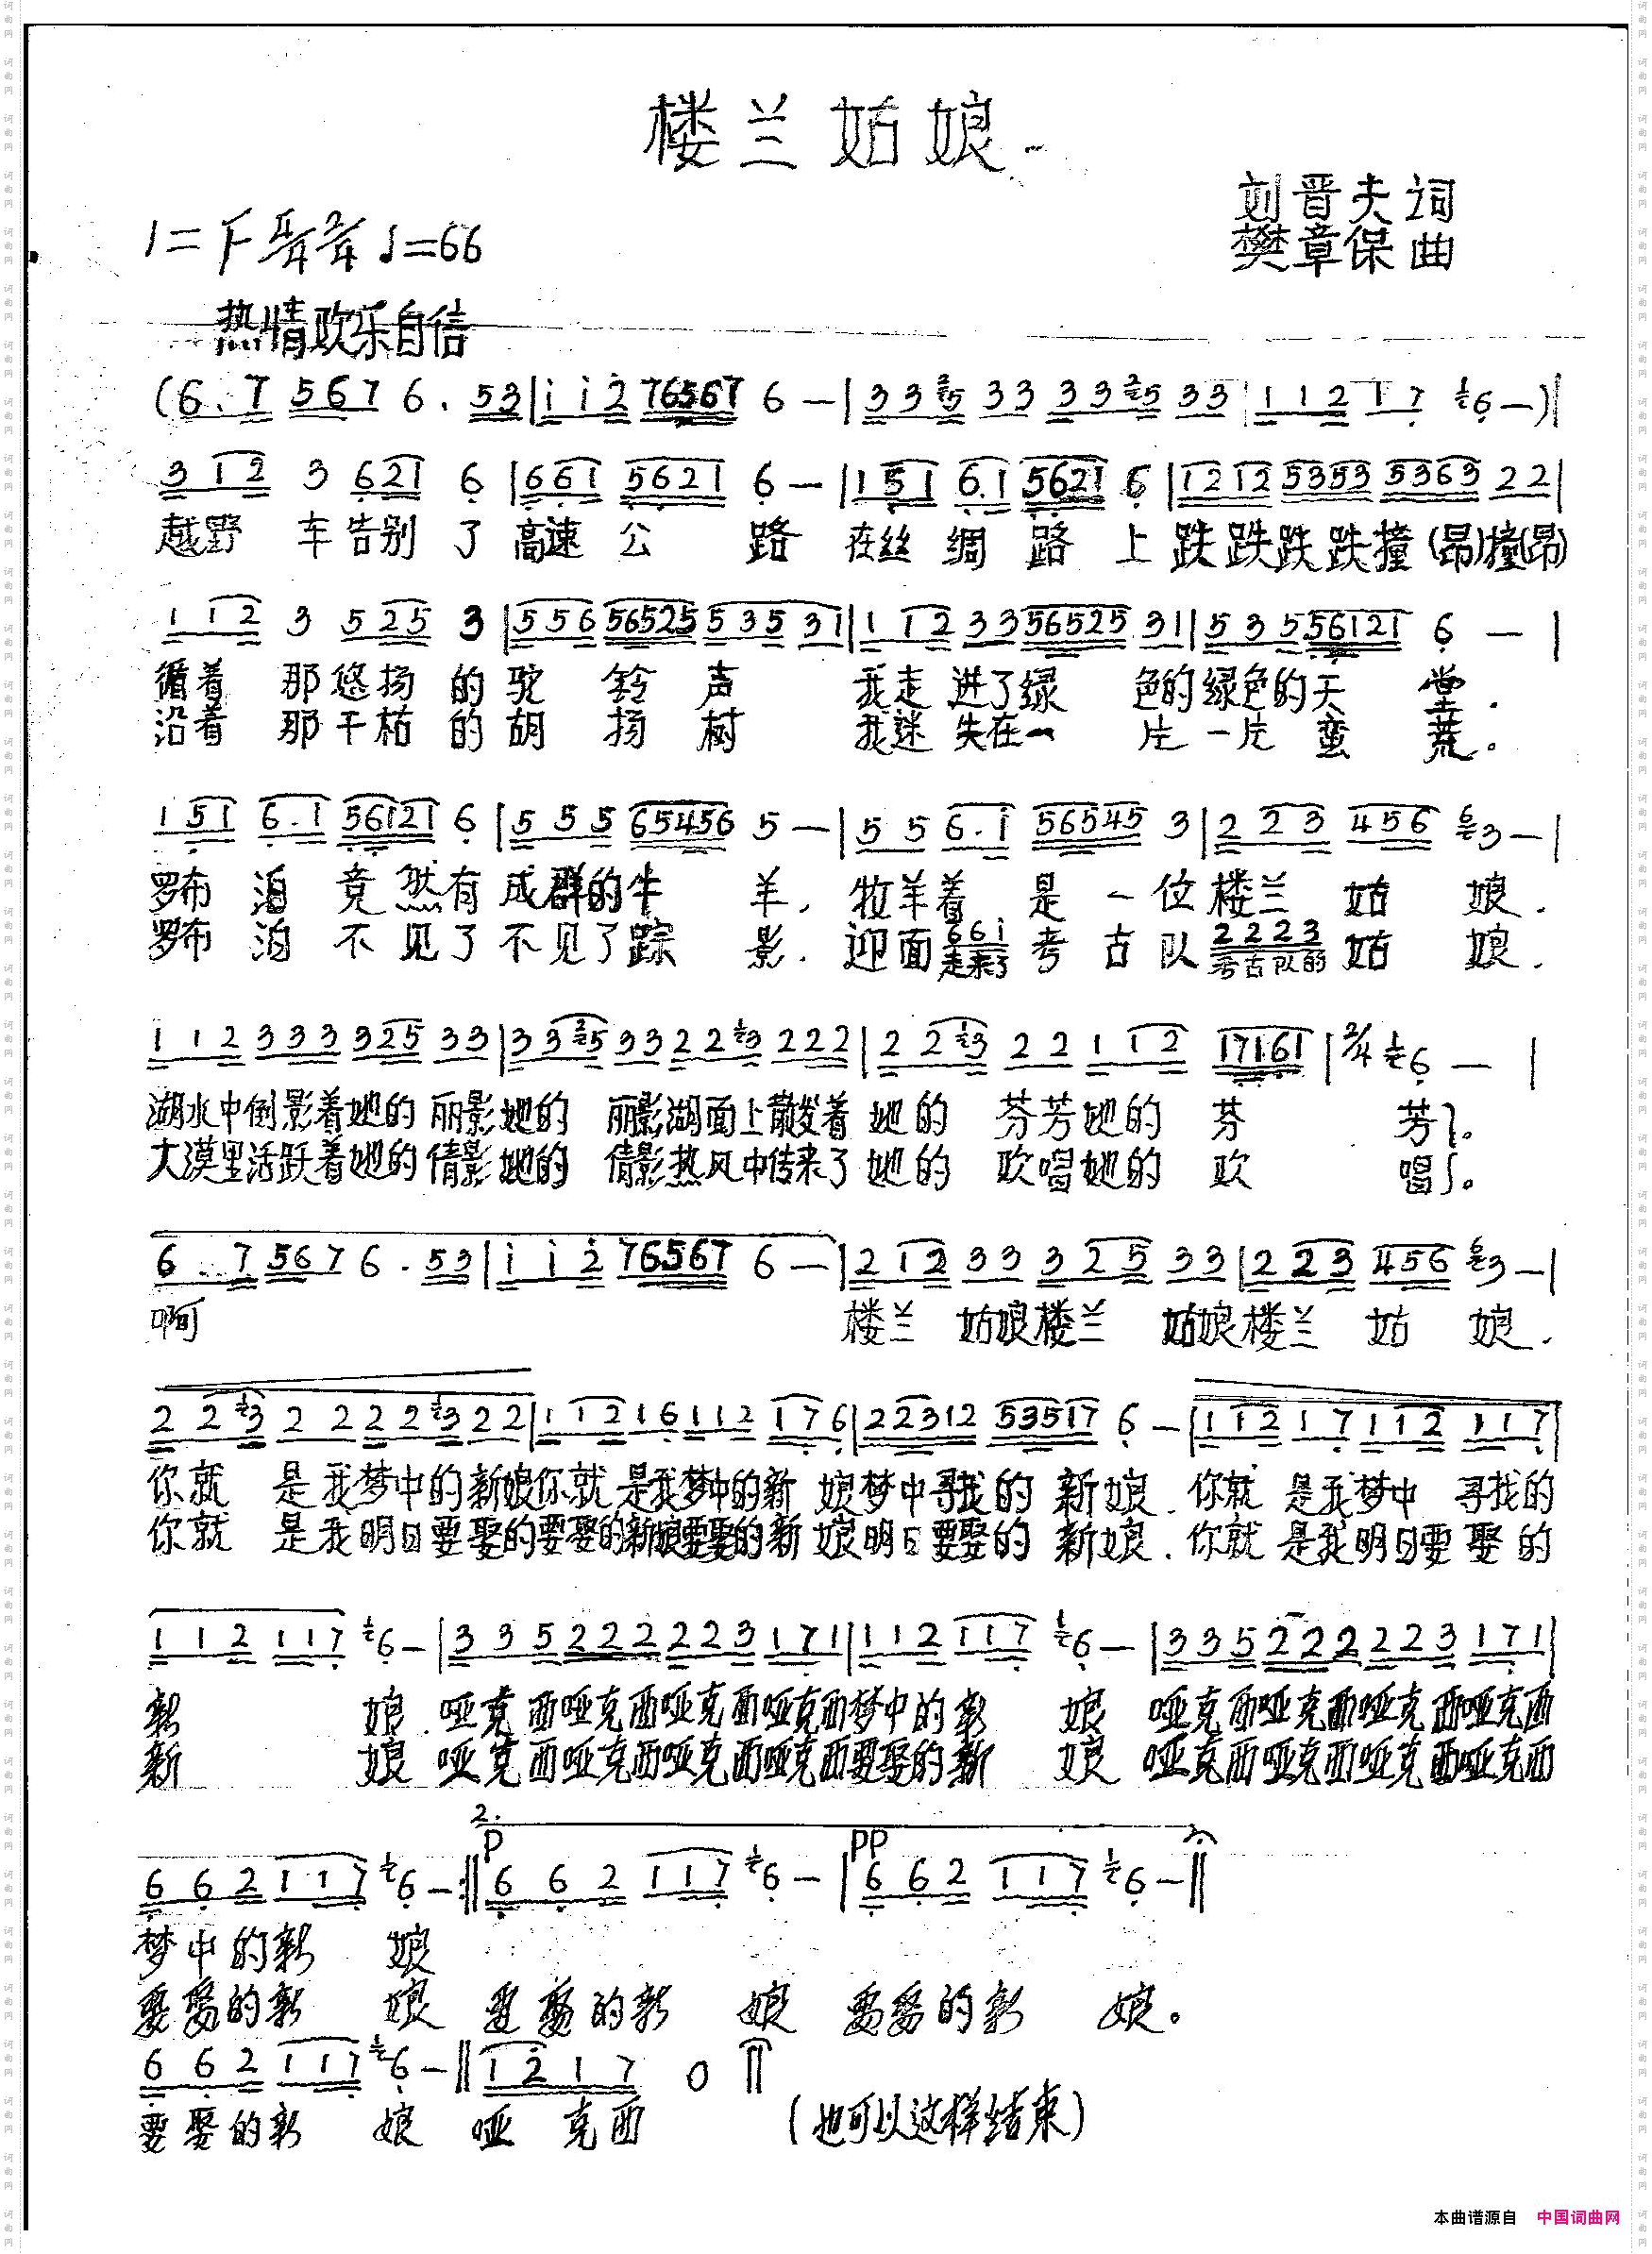 楼兰姑娘
刘晋夫 词
樊章保 曲
1=F 4/4 2/4 ♩=66
热情欢乐自信
(6.7 567 6.53|i i 2 76567 6 —|3 3 5 33 33 5 33|1 1 2 1 7 6 —)|
3 12 3 621 6|661 5621 6 —|151 6.1 5621 6|1212 5353 5363 22|
越野 车告别 了 高速 公 路 在丝 绸 路 上 跌跌跌跌撞(昂)撞(昂)
1 12 3 525 3|556 56525 535 31|1 12 33 56525 31|535 56121 6 —|
循着 那悠扬 的 驼 铃 声 我走 进了绿 色的绿色的天 堂.
沿着 那干枯 的 胡 扬 树 我迷 失在一 片一片 蛮 荒。
151 6.1 56121 6|555 65456 5 —|55 6.i 56545 3|223 456 3 —|
罗布 泊 竟 然有 成群的牛 羊. 牧羊着 是 一 位 楼兰 姑 娘.
罗布 泊 不 见了 不见了踪 影. 迎面 661 考 古 队 2223 姑 娘.
走来了 考古队的
112 333 325 33|335 33 223 222|223 22 112 17161|2/4 6 —|
湖水中倒影着她的 丽影她的 丽影湖面上散发着 她的 芬芳她的 芬 芳.
大漠里活跃着她的 倩影她的 倩影热风中传来了 她的 欢唱她的 欢 唱。
6.7 567 6.53|i i 2 76567 6 —|212 33 325 33|223 456 3 —|
啊 楼兰 姑娘楼兰 姑娘楼兰 姑 娘.
223 22 223 22|112 16 112 176|22312 53517 6 —|112 17 112 117|
你就 是我梦中的新娘你就 是我梦中的新 娘梦中寻找的 新娘. 你就 是我梦中 寻找的
你就 是我明日要娶的要娶的新娘要娶的新 娘明日要娶的 新娘. 你就 是我明日要 娶的
112 117 6 —|335 222 223 171|112 117 6 —|335 222 223 171|
新 娘. 哑克西哑克西哑克西哑克西梦中的新 娘 哑克西哑克西哑克西哑克西
新 娘 哑克西哑克西哑克西哑克西要娶的新 娘 哑克西哑克西哑克西哑克西
2.
p pp
662 117 6 —:‖662 117 6 —|662 117 6 —‖
梦中的新 娘
要娶的新 娘 要娶的新 娘 要娶的新 娘。
662 117 6 —‖12 17 0‖
要娶的新 娘 哑 克西 (也可以这样结束)
本曲谱源自 中国词曲网